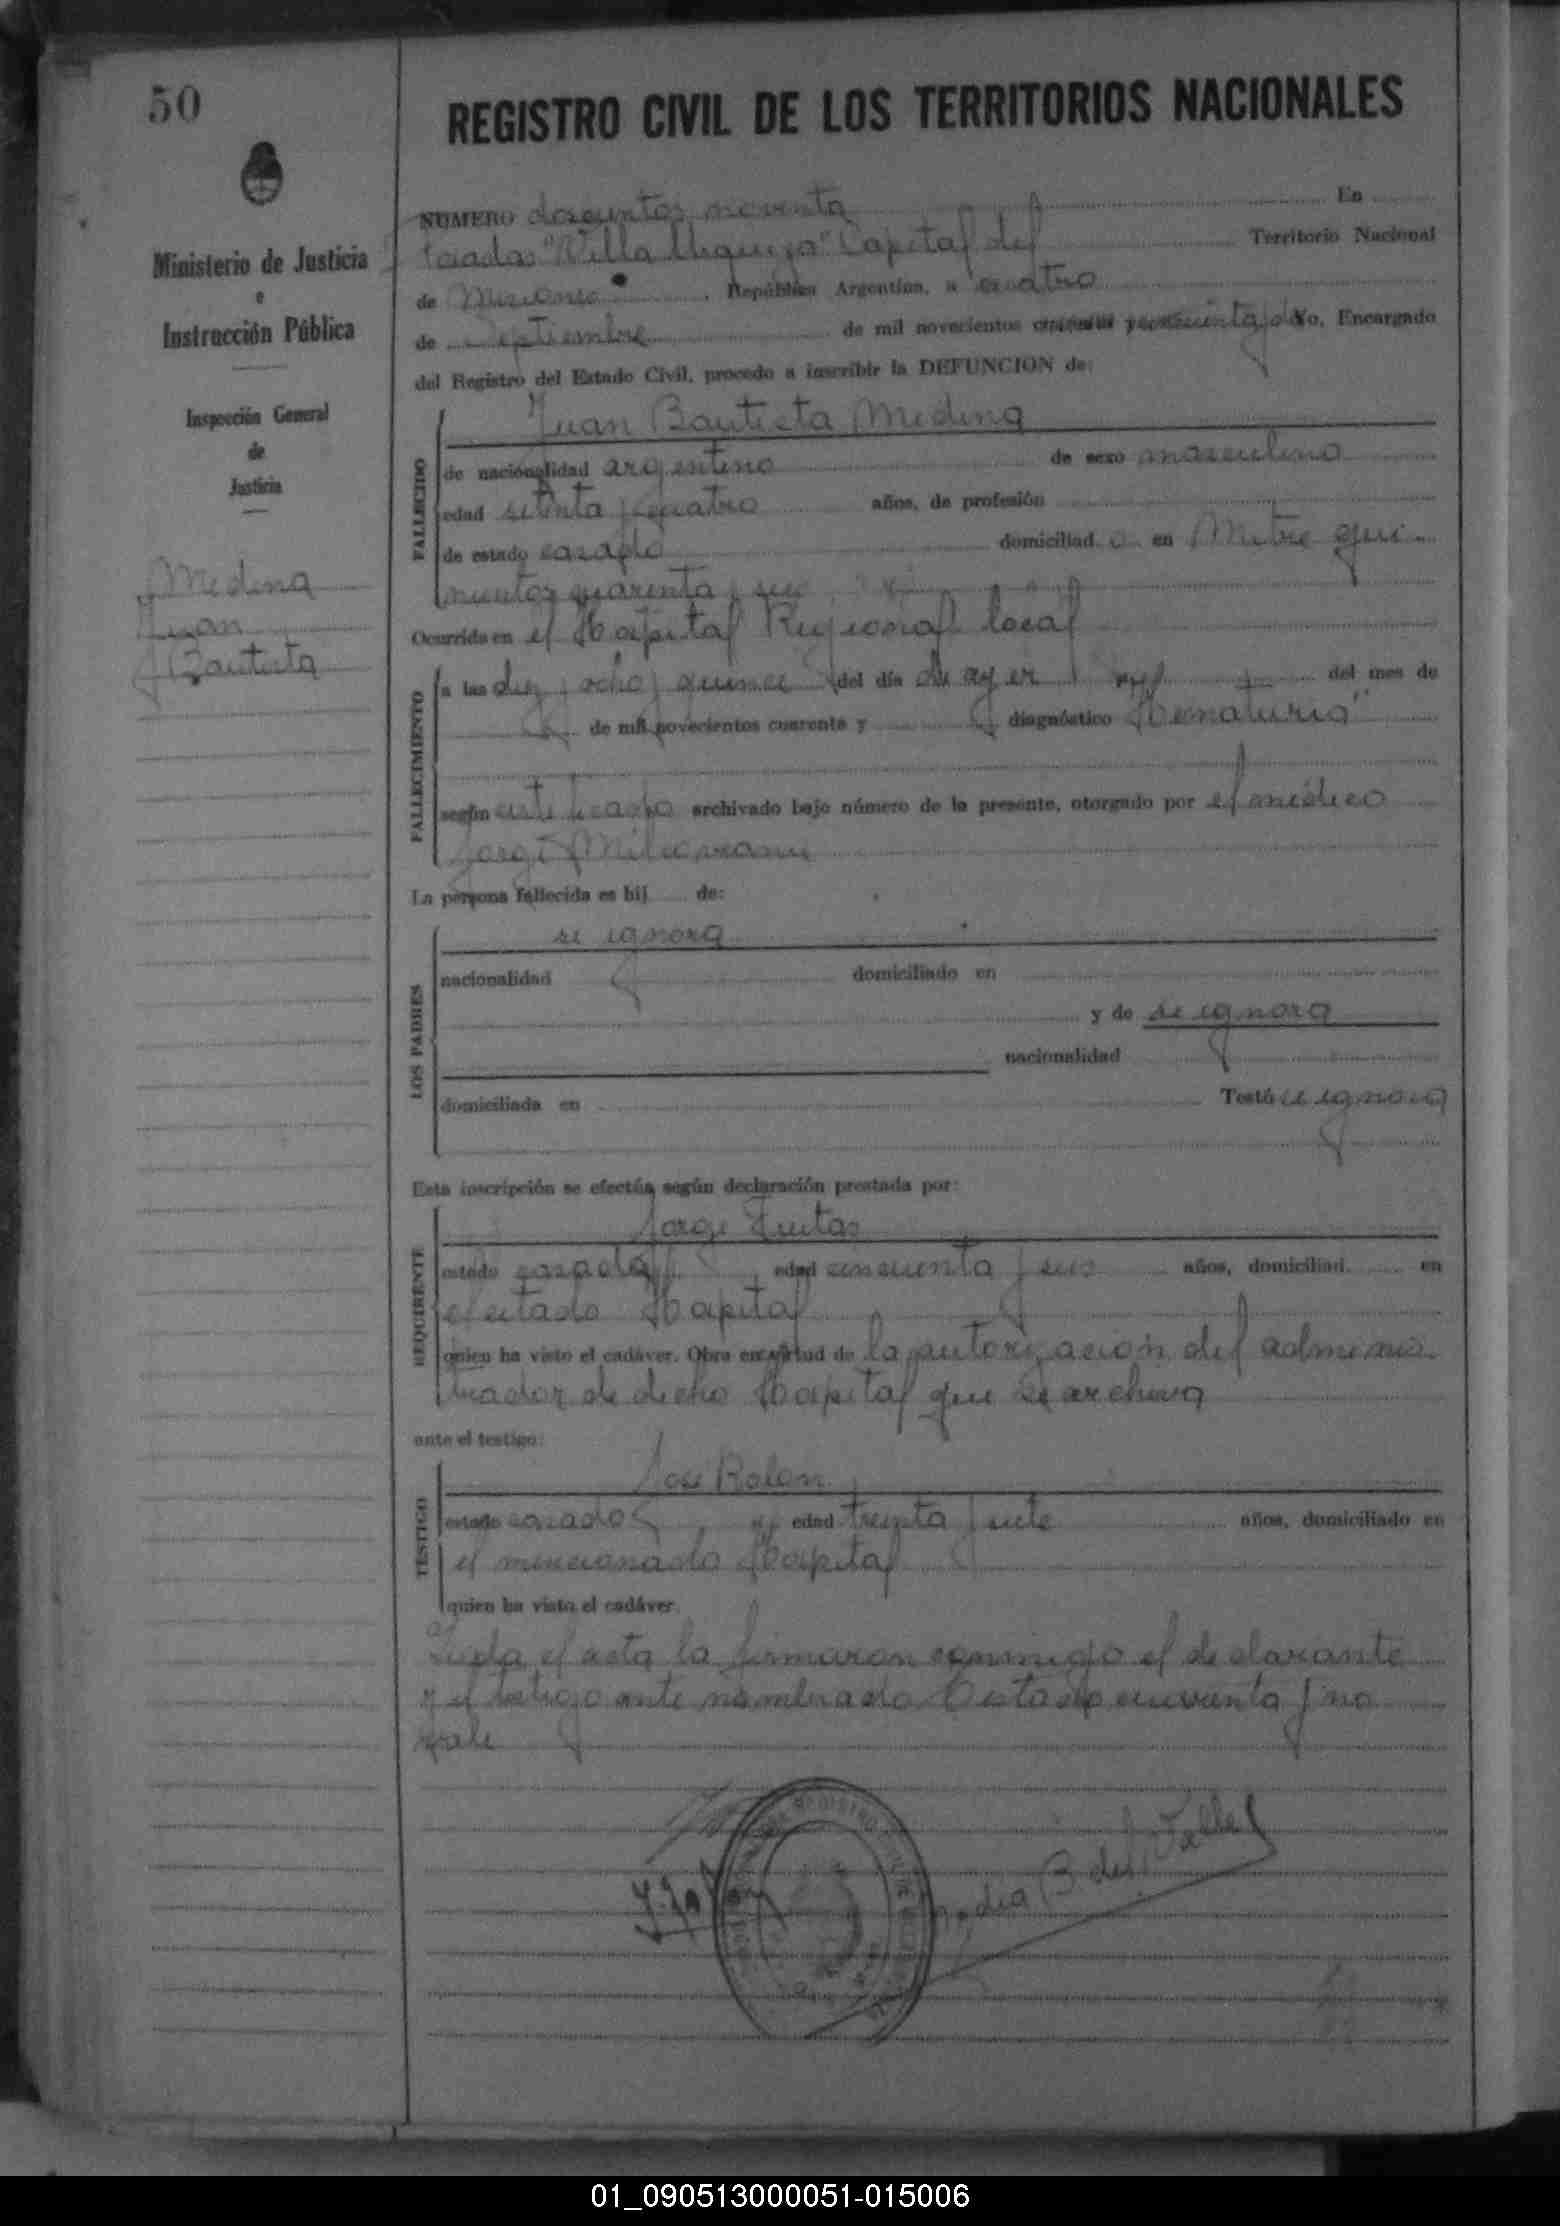 50
REGISTRO CIVIL DE LOS TERRITORIOS NACIONALES
Ministerio de Justicia
e
Instrucción Pública
Inspección General
de
Justicia
Medina
Juan
Bautista
NUMERO doscientos noventa En
Posadas "Villa Urquiza" Capital del Territorio Nacional
de Misiones, República Argentina, a cuatro
de Septiembre de mil novecientos cincuenta y dos Yo, Encargado
del Registro del Estado Civil, procedo a inscribir la DEFUNCION de:
FALLECIDO
Juan Bautista Medina
de nacionalidad argentino de sexo masculino
edad setenta y cuatro años, de profesión
de estado casado domiciliad o en Mitre qui-
nientos cuarenta y seis
Ocurrida en el Hospital Regional local
FALLECIMIENTO
a las diez y ocho y quince del día de ayer del mes de
de mil novecientos cuarenta y diagnóstico Hematuria"
según certificado archivado bajo número de la presente, otorgado por el médico
Jorge
La persona fallecida es hij de:
LOS PADRES
se ignora
nacionalidad domiciliado en
y de se ignora
nacionalidad
domiciliada en Testó se ignora
Esta inscripción se efectúa según declaración prestada por:
REQUIRENTE
Jorge
estado casado edad cincuenta y seis años, domiciliad en
el citado Hospital
quien ha visto el cadáver. Obra en virtud de la autorización del adminis-
trador de dicho Hospital que se archiva
ante el testigo:
TESTIGO
José Rolon
estado casado edad treinta y siete años, domiciliado en
el mencionado Hospital
quien ha visto el cadáver.
Leida el acta la firmaron conmigo el declarante
y el testigo ante nombrado Testado cuarenta y no
vale
REGISTRO
B. del Valle
01_090513000051-015006